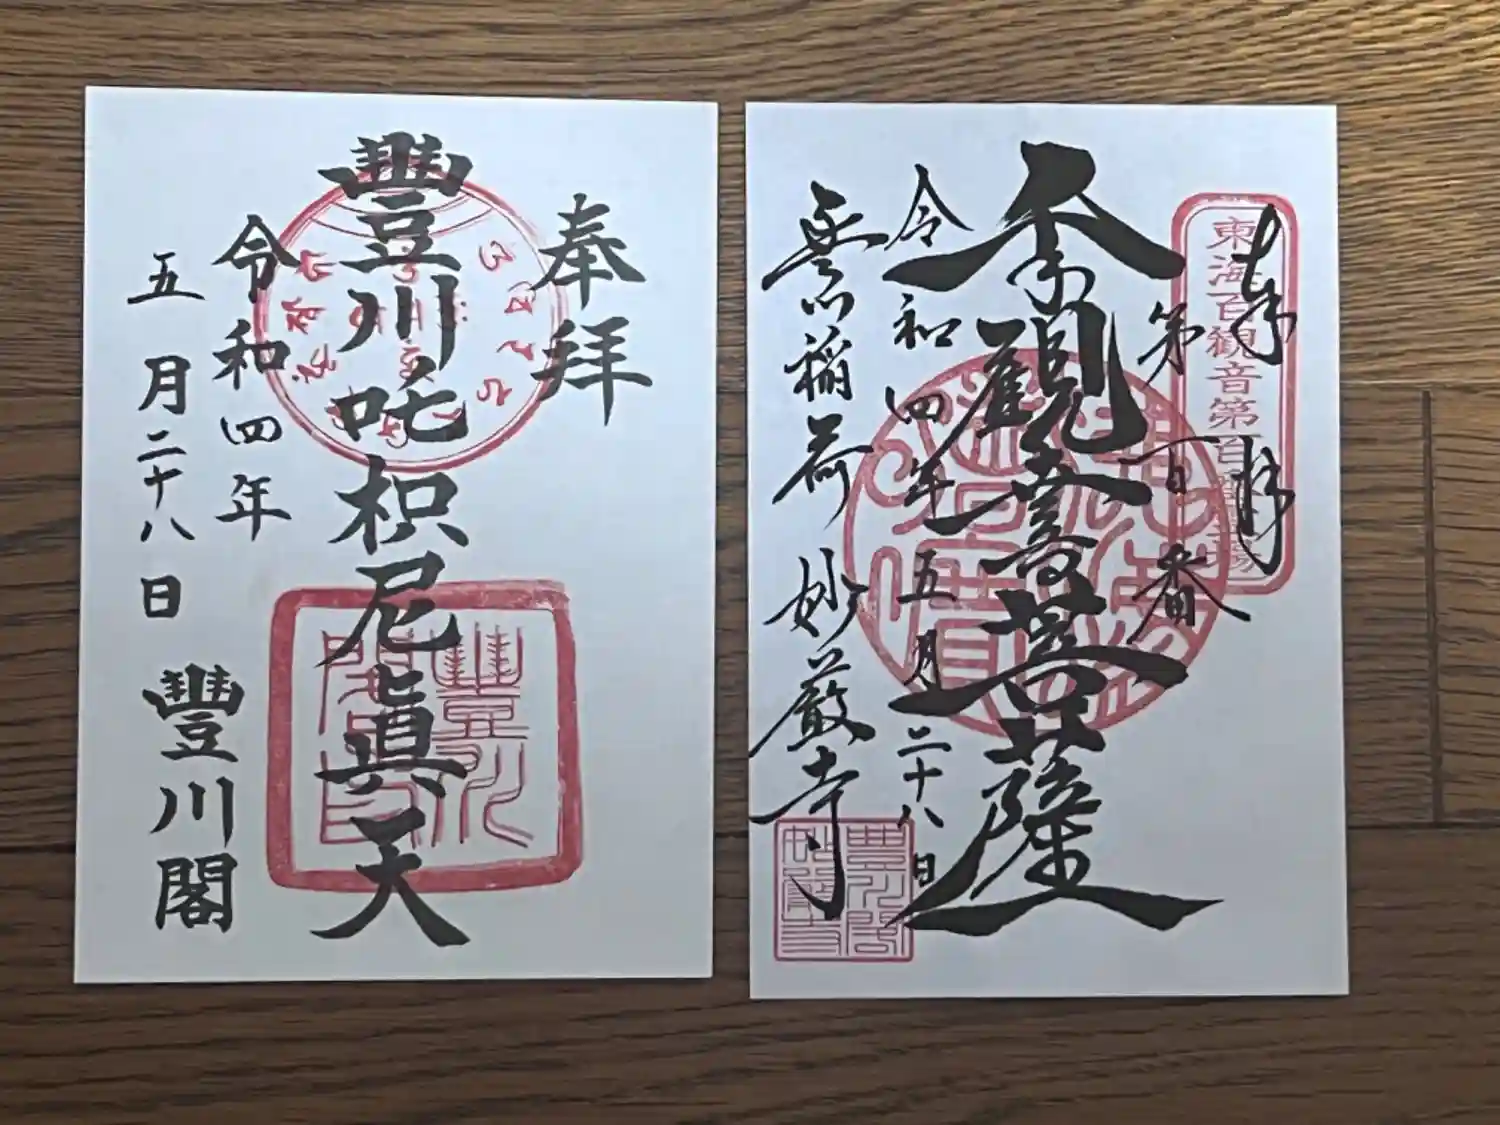 奉拝
豐川吒枳尼眞天
令和四年
五月二十八日
豐川閣
豐川
奉拝
東海百観音第百番霊場
第百番
觀音菩薩
令和四年五月二十八日
稲荷
妙厳寺
豊川閣
妙厳寺